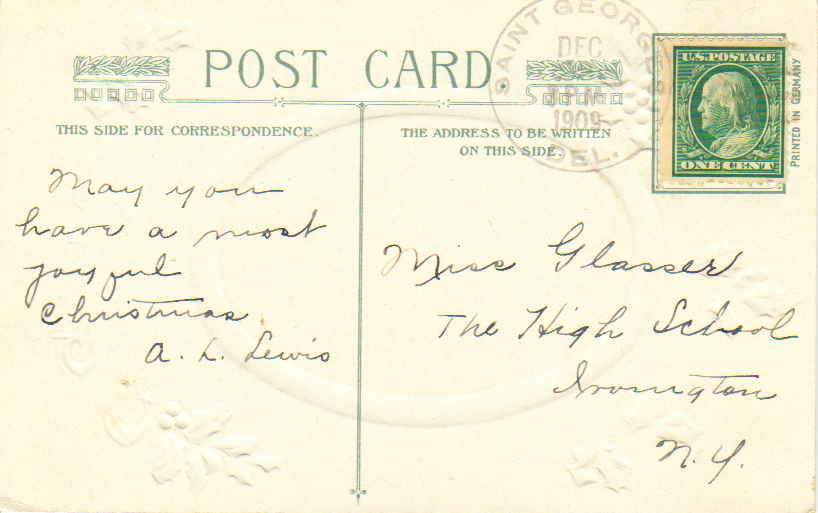 POST CARD.
THIS SIDE FOR CORRESPONDENCE.
THE ADDRESS TO BE WRITTEN
ON THIS SIDE.
SAINT GEORGE
DEC
1909
DEL.
U.S. POSTAGE
ONE CENT
PRINTED IN GERMANY
May you
have a most
joyful
Christmas
A. L. Lewis
Miss Glasser
The High School
Irvington
N.Y.